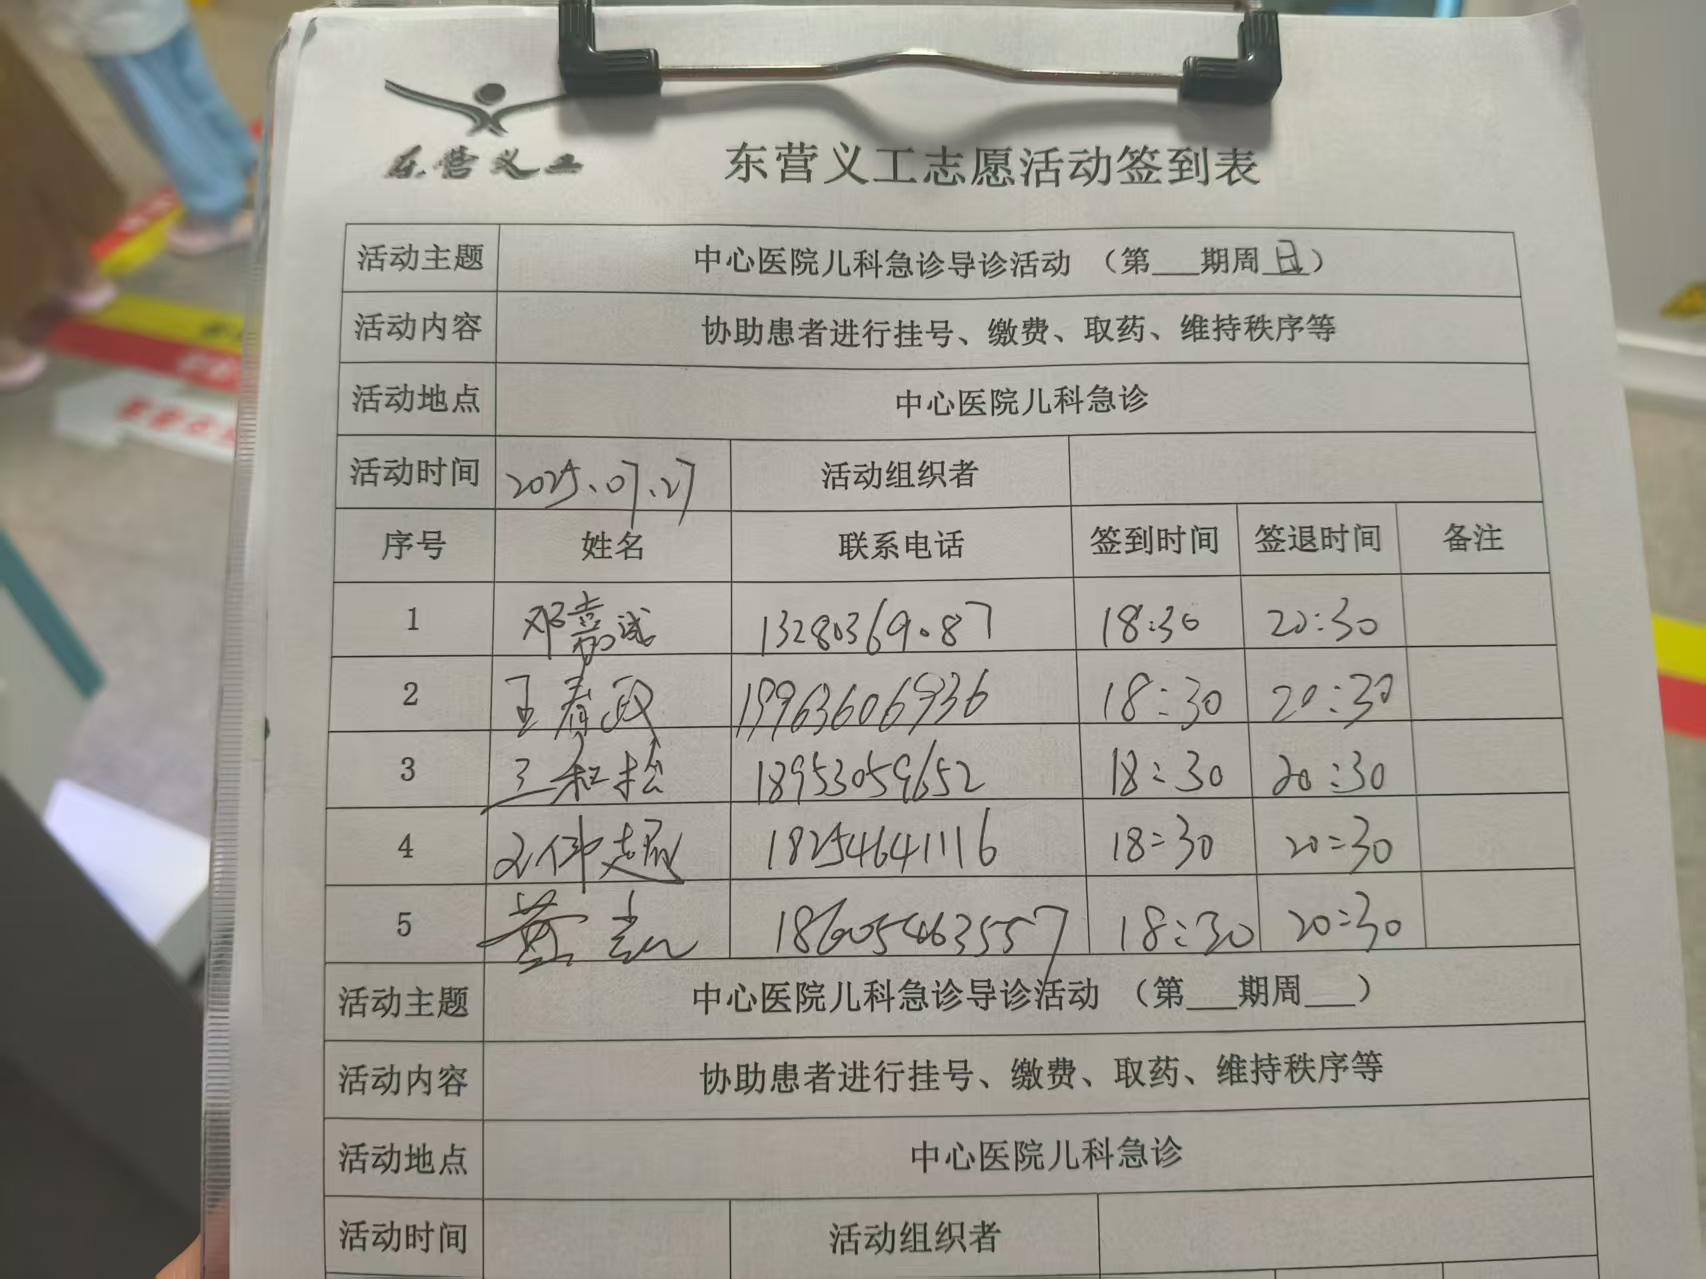 东营义工
东营义工志愿活动签到表
活动主题 中心医院儿科急诊导诊活动 （第___期周日）
活动内容 协助患者进行挂号、缴费、取药、维持秩序等
活动地点 中心医院儿科急诊
活动时间 2025.07.27 活动组织者
序号 姓名 联系电话 签到时间 签退时间 备注
1 邓嘉诚 13280369087 18:30 20:30
2 王春政 19963606936 18:30 20:30
3 王和松 18953059652 18:30 20:30
4 18254641116 18:30 20:30
5 黄 18605463557 18:30 20:30
活动主题 中心医院儿科急诊导诊活动 （第___期周___）
活动内容 协助患者进行挂号、缴费、取药、维持秩序等
活动地点 中心医院儿科急诊
活动时间 活动组织者